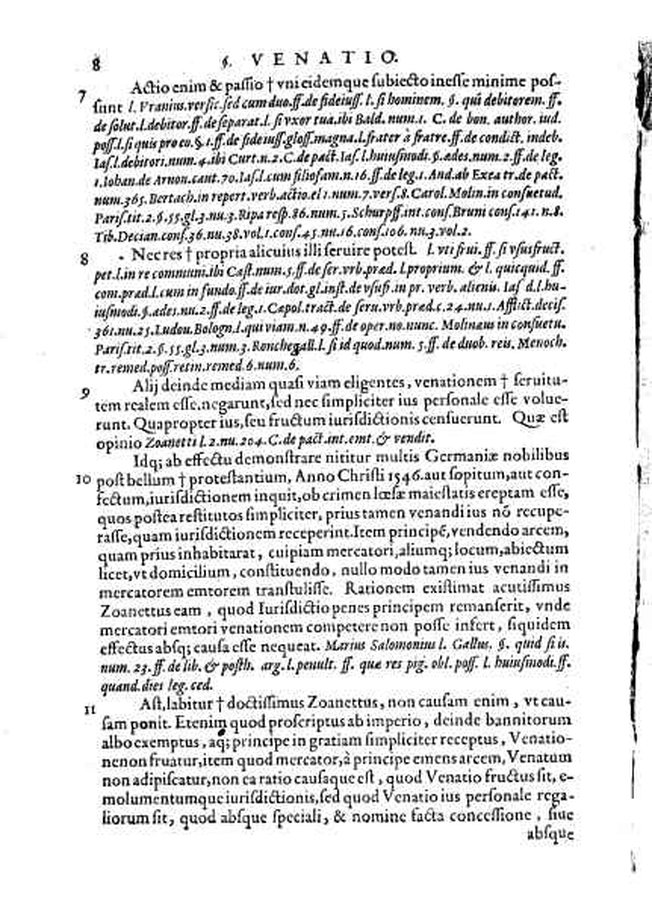 8 §. VENATIO.
Actio enim & passio † vni eidemque subiecto inesse minime pos-
7 sunt l. Vranius. versic. sed cum duo. ff. de fideiuss. l. si hominem. §. qui debitorem. ff.
de solut. l. debitor. ff. de separat. l. si vxor tua. ibi Bald. num. 1. C. de bon. author. iud.
poss. l. si quis pro eo. §. 1. ff. de fideiuss. gloss. magna. l. frater à fratre. ff. de condict. indeb.
Ias. l. debitori. num. 4. ibi Curt. n. 2. C. de pact. Ias. l. huiusmodi §. ades. num. 2. ff. de leg.
1. Iohan. de Arnon. caut. 70. Ias. l. cum filiofam. n. 16. ff. de leg. 1. And. ab Exea tr. de pact.
num. 365. Bertach. in repert. verb. actio. el 1. num. 7. vers. 8. Carol. Molin. in consuetud.
Paris. tit. 2. §. 55. gl. 3. nu. 3. Ripa resp. 86. num. 5. Schurpff. int. cons. Bruni cons. 141. n. 8.
Tib. Decian. cons. 36. nu. 38. vol. 1. cons. 45. nu. 16. cons. 106. nu. 3. vol. 2.
8 Nec res † propria alicuius illi seruire potest. l. vti frui. ff. si vsusfruct.
pet. l. in re communi. ibi Cast. num. 5. ff. de ser. vrb. præd. l. proprium. & l. quicquid. ff.
com. præd. l. cum in fundo. ff. de iur. dot. gl. inst. de vsufr. in pr. verb. alienis. Ias d. l. hu-
iusmodi §. ades. nu. 2. ff. de leg. 1. Cæpol. tract. de seru. vrb. præd. c. 24. nu. 1. Afflict. decis.
361. nu. 25. Ludou. Bologn. l. qui viam. n. 49. ff. de oper. no. nunc. Molinæus in consuetu.
Paris. tit. 2. §. 55. gl. 3. num. 3. Ronchegall. l. si id quod. num. 5. ff. de duob. reis. Menoch.
tr. remed. poss. retin. remed. 6. num. 6.
9 Alij deinde mediam quasi viam eligentes, venationem † seruitu-
tem realem esse. negarunt, sed nec simpliciter ius personale esse volue-
runt. Quapropter ius, seu fructum iurisdictionis censuerunt. Quæ est
opinio Zoanetti l. 2. nu. 204. C. de pact. int. emt. & vendit.
Idq; ab effectu demonstrare nititur multis Germaniæ nobilibus
10 post bellum † protestantium, Anno Christi 1546. aut sopitum, aut con-
fectum, iurisdictionem inquit, ob crimen lœsæ maiestatis ereptam esse,
quos postea restitutos simpliciter, prius tamen venandi ius nō recupe-
rasse, quam iurisdictionem receperint. Item principē, vendendo arcem,
quam prius inhabitarat, cuipiam mercatori, aliumq; locum, abiectum
licet, vt domicilium, constituendo, nullo modo tamen ius venandi in
mercatorem emtorem transtulisse. Rationem existimat acutissimus
Zoanettus eam, quod Iurisdictio penes principem remanserit, vnde
mercatori emtori venationem competere non posse infert, siquidem
effectus absq; causa esse nequeat. Marius Salomonius l. Gallus. §. quid si is.
num. 23. ff. de lib. & posth. arg. l. penult. ff. quæ res pig. obl. poss. l. huiusmodi. ff.
quand. dies leg. ced.
11 Ast, labitur † doctissimus Zoanettus, non causam enim, vt cau-
sam ponit. Etenim quod proscriptus ab imperio, deinde bannitorum
albo exemptus, aq; principe in gratiam simpliciter receptus, Venatio-
ne non fruatur, item quod mercator, à principe emens arcem, Venatum
non adipiscatur, non ea ratio causaque est, quod Venatio fructus sit, e-
molumentumque iurisdictionis, sed quod Venatio ius personale rega-
liorum sit, quod absque speciali, & nomine facta concessione, siue
absque